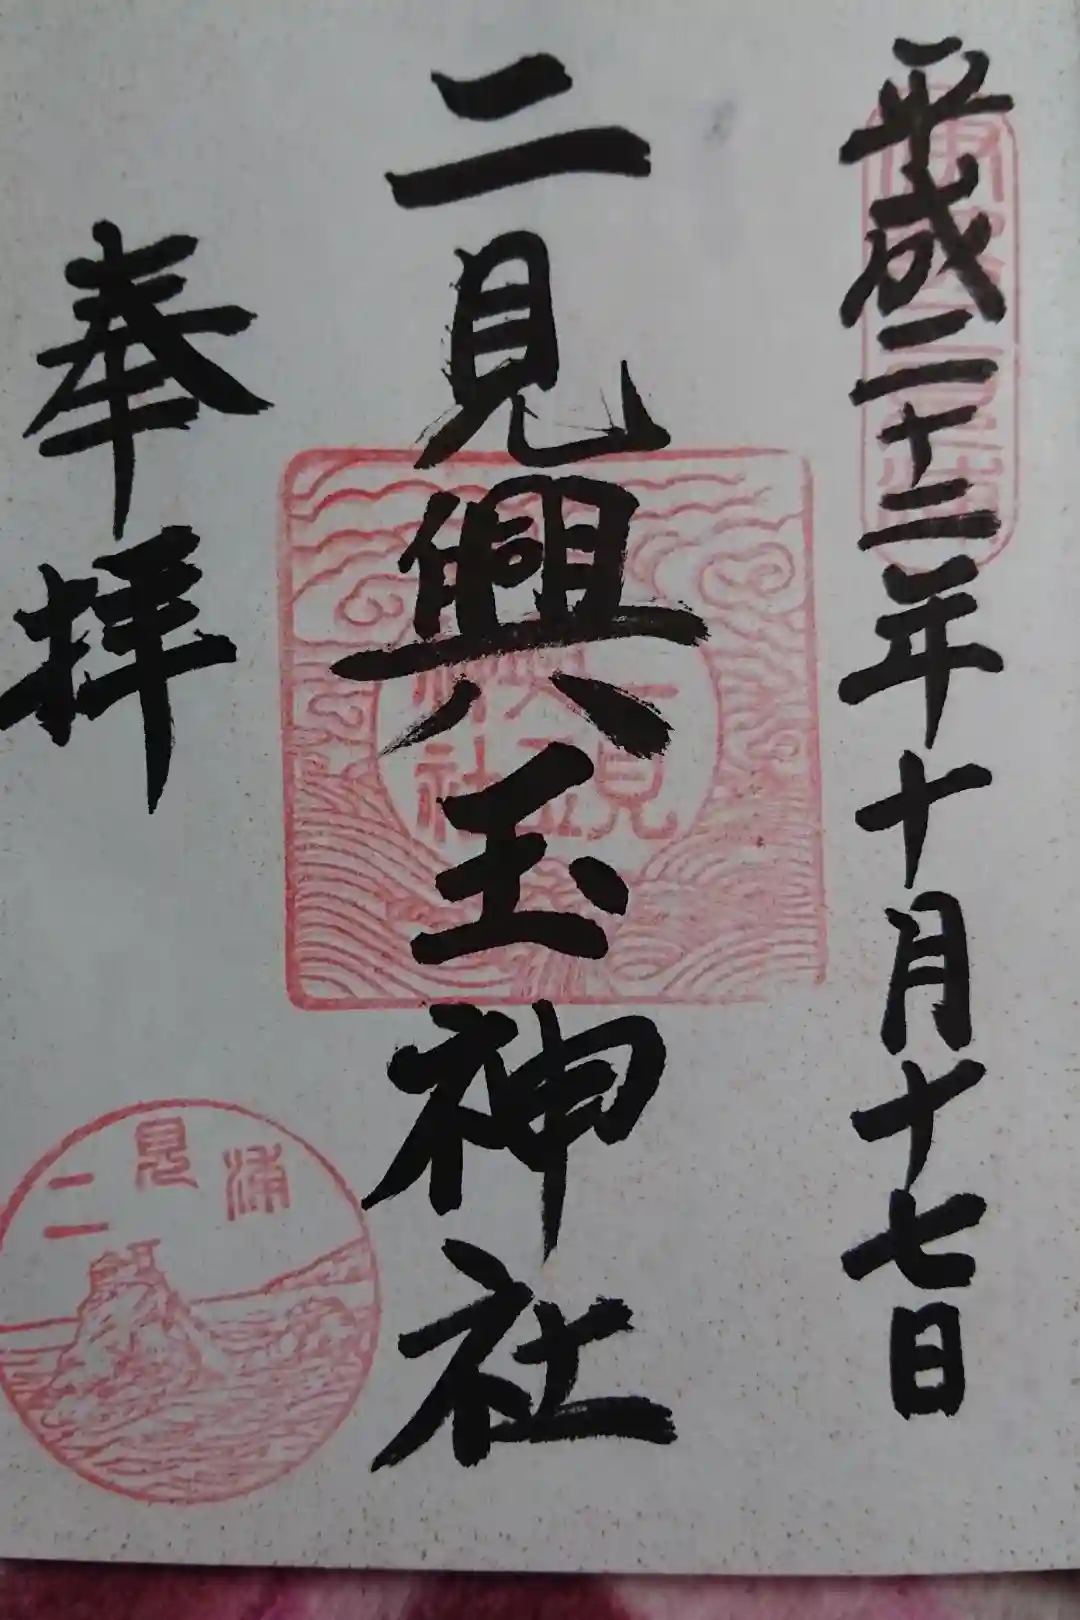 平成二十二年十月十七日
二見興玉神社
奉拝
二見
興玉
神社
二見浦